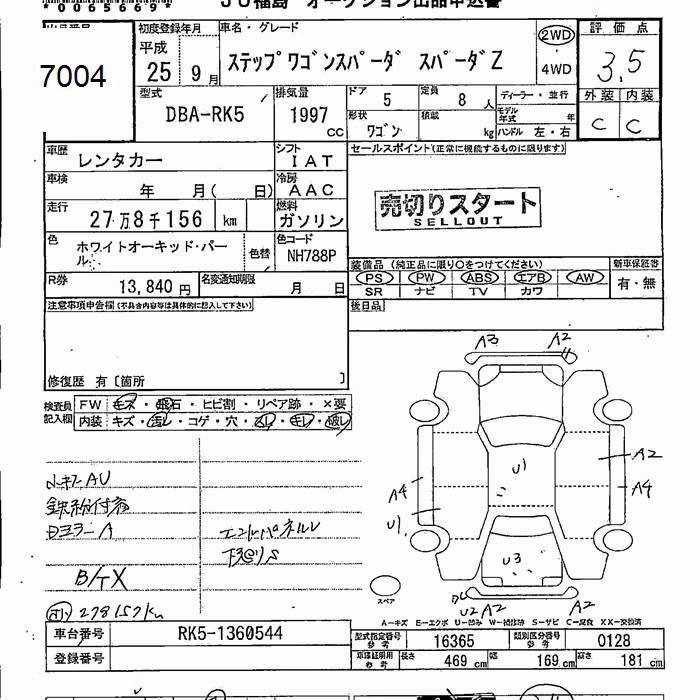 *0065669*
JU福島 オークション出品申込書
出品番号
7004
初度登録年月
平成
25 年 9 月
車名・グレード
ステップワゴンスパーダ スパーダZ
2WD
4WD
評価点
3.5
外装 内装
C C
型式
DBA-RK5
排気量
1997 CC
ドア 5
定員 8 人
形状 ワゴン
積載 kg
ディーラー・並行
モデル年式 年
ハンドル 左・右
車歴
レンタカー
シフト
IAT
車検
年 月( 日)
冷房
AAC
走行
27万8千156 km
燃料
ガソリン
色
ホワイトオーキッド・パール
色替
色コード
NH788P
R券
13,840 円
名変通知期限
月 日
セールスポイント(正常に機能するものに限ります)
売切りスタート
SELLOUT
装備品 (純正品に限り○をつけてください)
PS PW ABS エアB AW
SR ナビ TV カワ
新車保証書
有・無
後日品
注意事項申告欄(不具合内容等は具体的に記入して下さい)
修復歴 有〔箇所 〕
検査員記入欄
FW キズ・飛石・ヒビ割・リペア跡・×要
内装 キズ・汚レ・コゲ・穴・スレ・キレ・破レ
ハンドル AU
鉄粉付着
Dミラー A
B/T X
278157km
下廻りS
A3 A2
U1
A2
A4 A4
U1
U3
U2 A2 A2
スペア
A−キズ E−エクボ U−凹み W−補修跡 S−サビ C−腐食 XX−交換済
車台番号 RK5-1360544
登録番号
型式指定番号参考 16365
類別区分番号参考 0128
車庫証明用参考 長さ 469 cm 幅 169 cm 高さ 181 cm